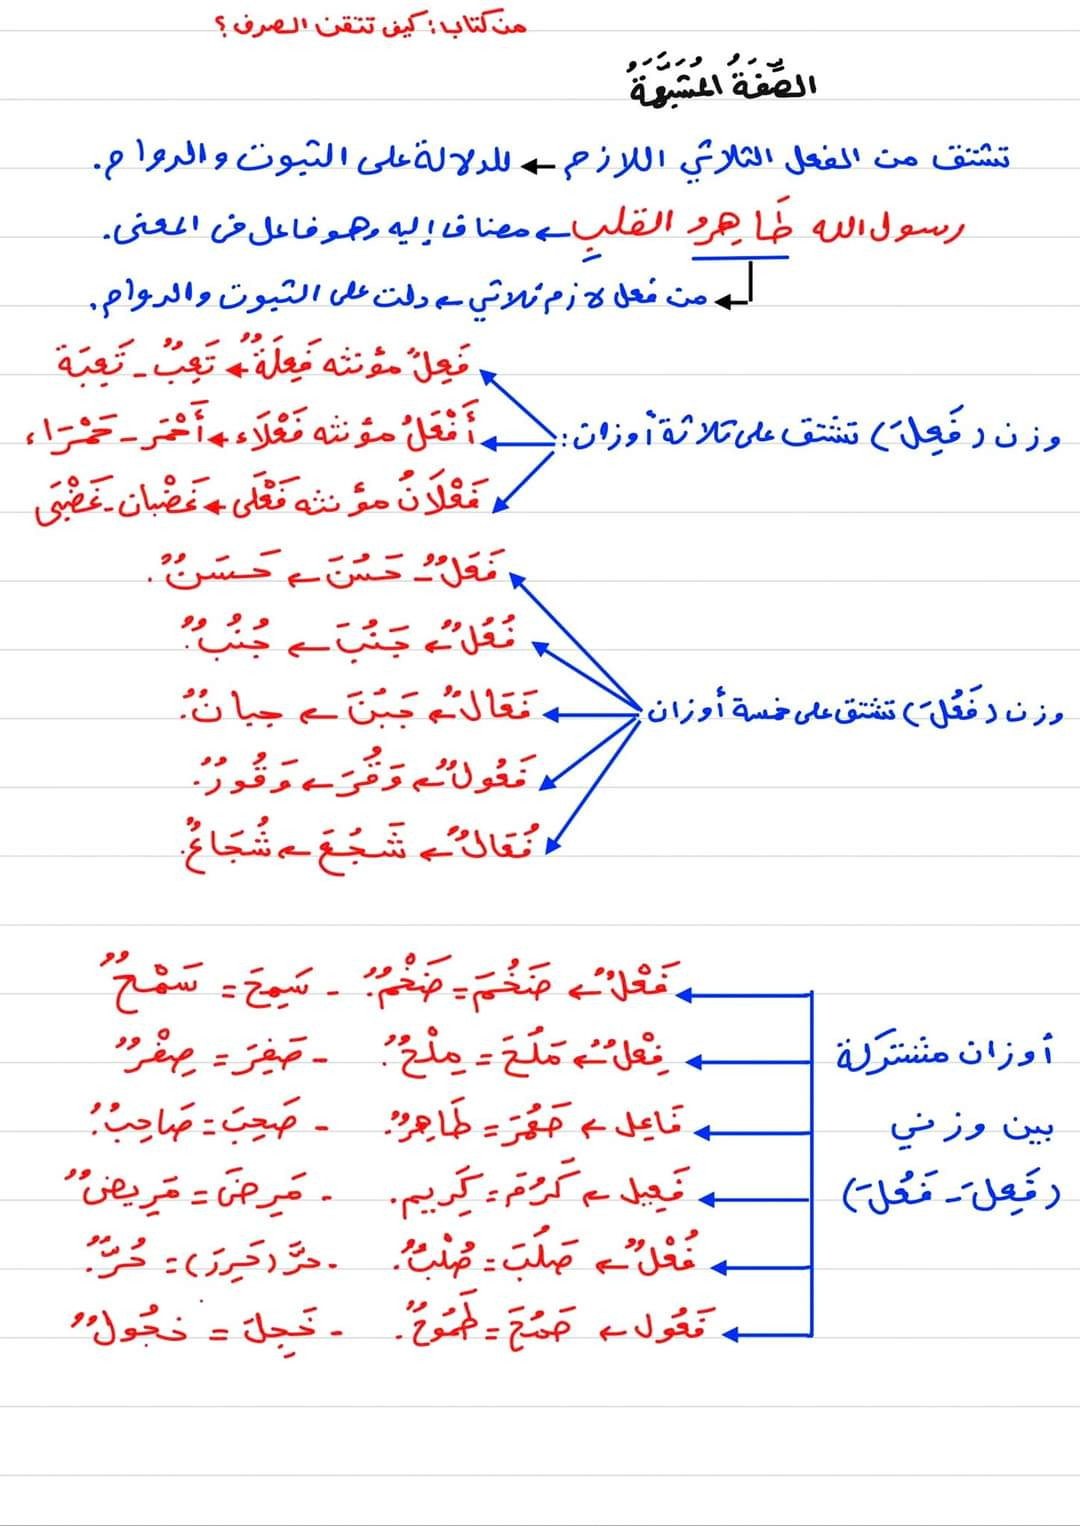 من كتاب: كيف تتقن الصرف؟
الصِّفَةُ المُشَبَّهَةُ
تشتق من الفعل الثلاثي اللازم ← للدلالة على الثبوت والدوام.
رسول الله طَاهِرُ القلبِ ← مضاف إليه وهو فاعل في المعنى.
← من فعل لازم ثلاثي ← دلت على الثبوت والدوام.
وزن (فَعِلَ) تشتق على ثلاثة أوزان:
فَعِلٌ مؤنثه فَعِلَةٌ ← تَعِبٌ - تَعِبَة
أَفْعَلُ مؤنثه فَعْلَاء ← أَحْمَر - حَمْرَاء
فَعْلَانُ مؤنثه فَعْلَى ← غَضْبان - غَضْبَى
وزن (فَعُلَ) تشتق على خمسة أوزان
فَعَلٌ - حَسُنَ ← حَسَنٌ.
فُعُلٌ ← جَنُبَ ← جُنُبٌ.
فَعَالٌ ← جَبُنَ ← جبانٌ.
فَعُولٌ ← وَقُرَ ← وَقُورٌ.
فُعَالٌ ← شَجُعَ ← شُجَاعٌ.
أوزان مشتركة
بين وزني
(فَعِلَ - فَعُلَ)
فَعْلٌ ← ضَخُمَ = ضَخْمٌ. - سَمِحَ = سَمْحٌ
فِعْلٌ ← مَلُحَ = مِلْحٌ. - صَفِرَ = صِفْرٌ
فَاعِل ← طَهُرَ = طَاهِرٌ. - صَحِبَ = صَاحِبٌ.
فَعِيل ← كَرُمَ = كَرِيم. - مَرِضَ = مَرِيضٌ
فُعْلٌ ← صَلُبَ = صُلْبٌ. - حرَّ (حَرِرَ) = حُرٌّ.
فَعُول ← طَمُحَ = طَمُوحٌ. - خَجِلَ = خجُولٌ